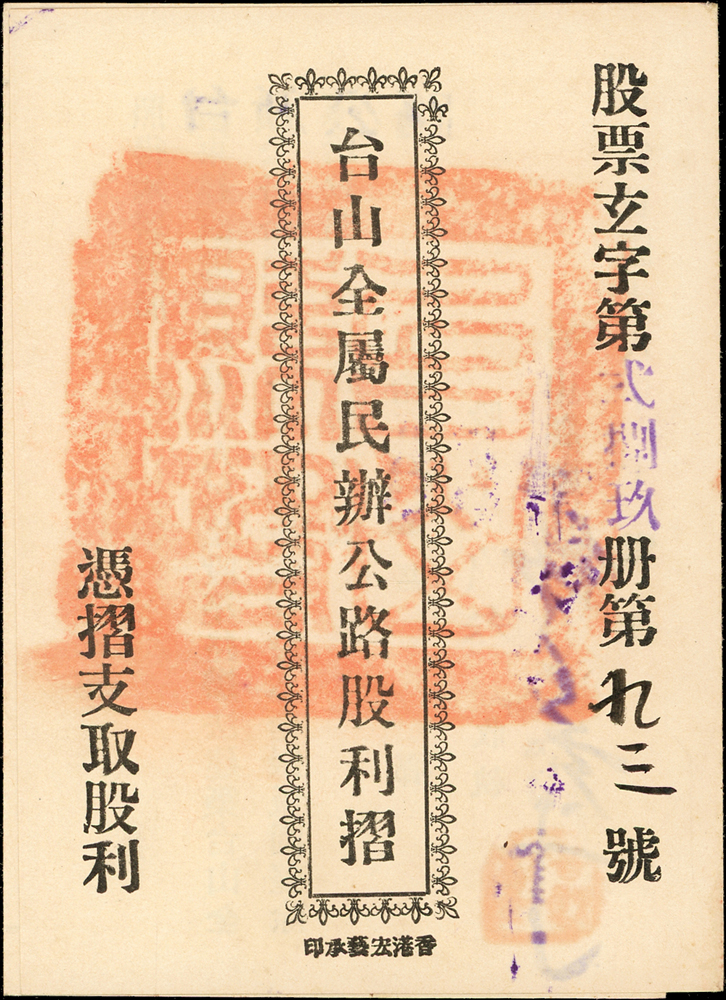 股票玄字第玖册第九三號
台山全屬民辦公路股利摺
憑摺支取股利
香港宏藝承印